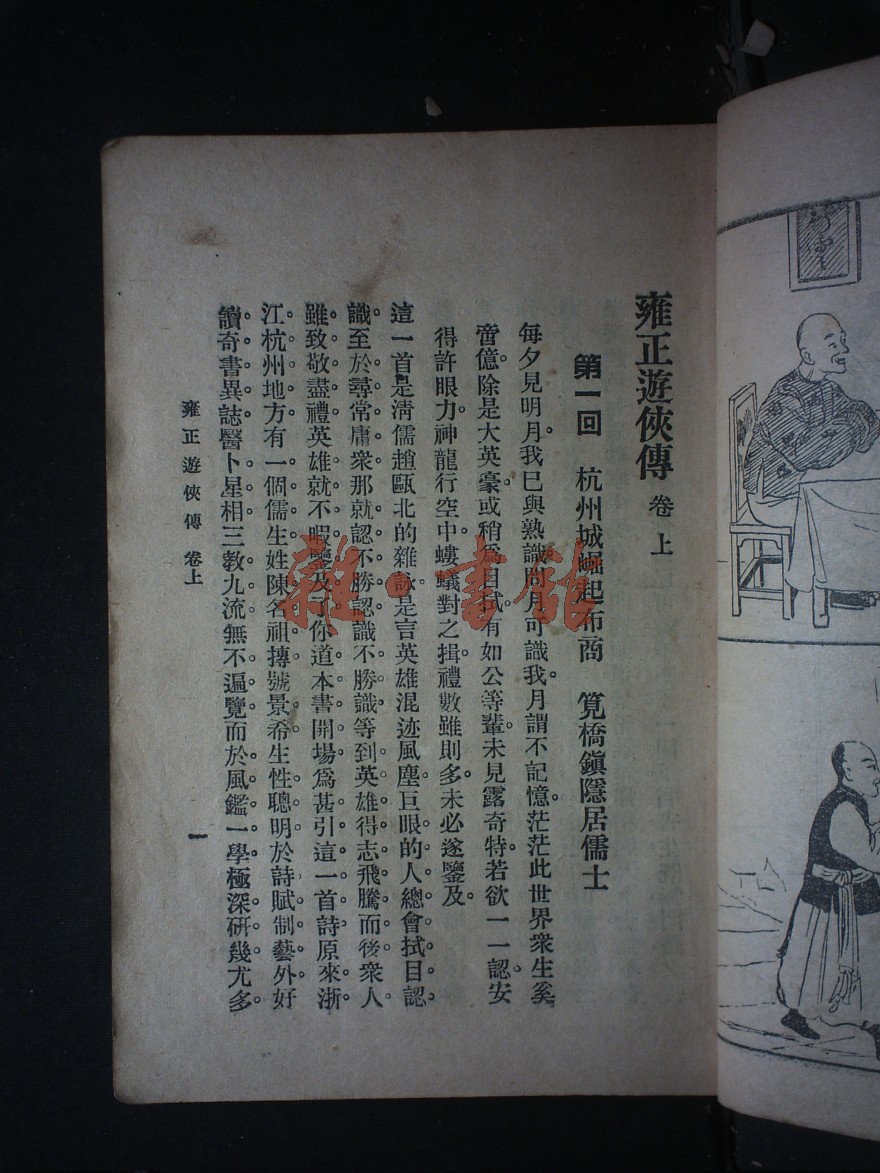 雍正遊俠傳 卷上
第一回 杭州城崛起布商 筧橋鎭隱居儒士
每夕見明月。我已與熟識。問月可識我。月謂不記憶。茫茫此世界。衆生奚
啻億。除是大英豪。或稍爲目拭。有如公等輩。未見露奇特。若欲一一認。安
得許眼力。神龍行空中。螻蟻對之揖。禮數雖則多。未必遂鑒及。
這一首是淸儒趙甌北的雜詠。是言英雄混迹風塵。巨眼的人。總會拭目認
識。至於尋常庸衆。那就認不勝認。識不勝識。等到英雄得志飛騰而後。衆人
雖致敬盡禮。英雄就不暇鑒及了。你道本書開場。爲甚引這一首詩。原來浙
江杭州地方。有一個儒生。姓陳名祖摶。號景希。生性聰明。於詩賦制藝外。好
讀奇書異誌。醫卜星相。三敎九流。無不遍覽。而於風鑑一學。極深研幾。尤多
雍正遊俠傳 卷上
一
雜·書館